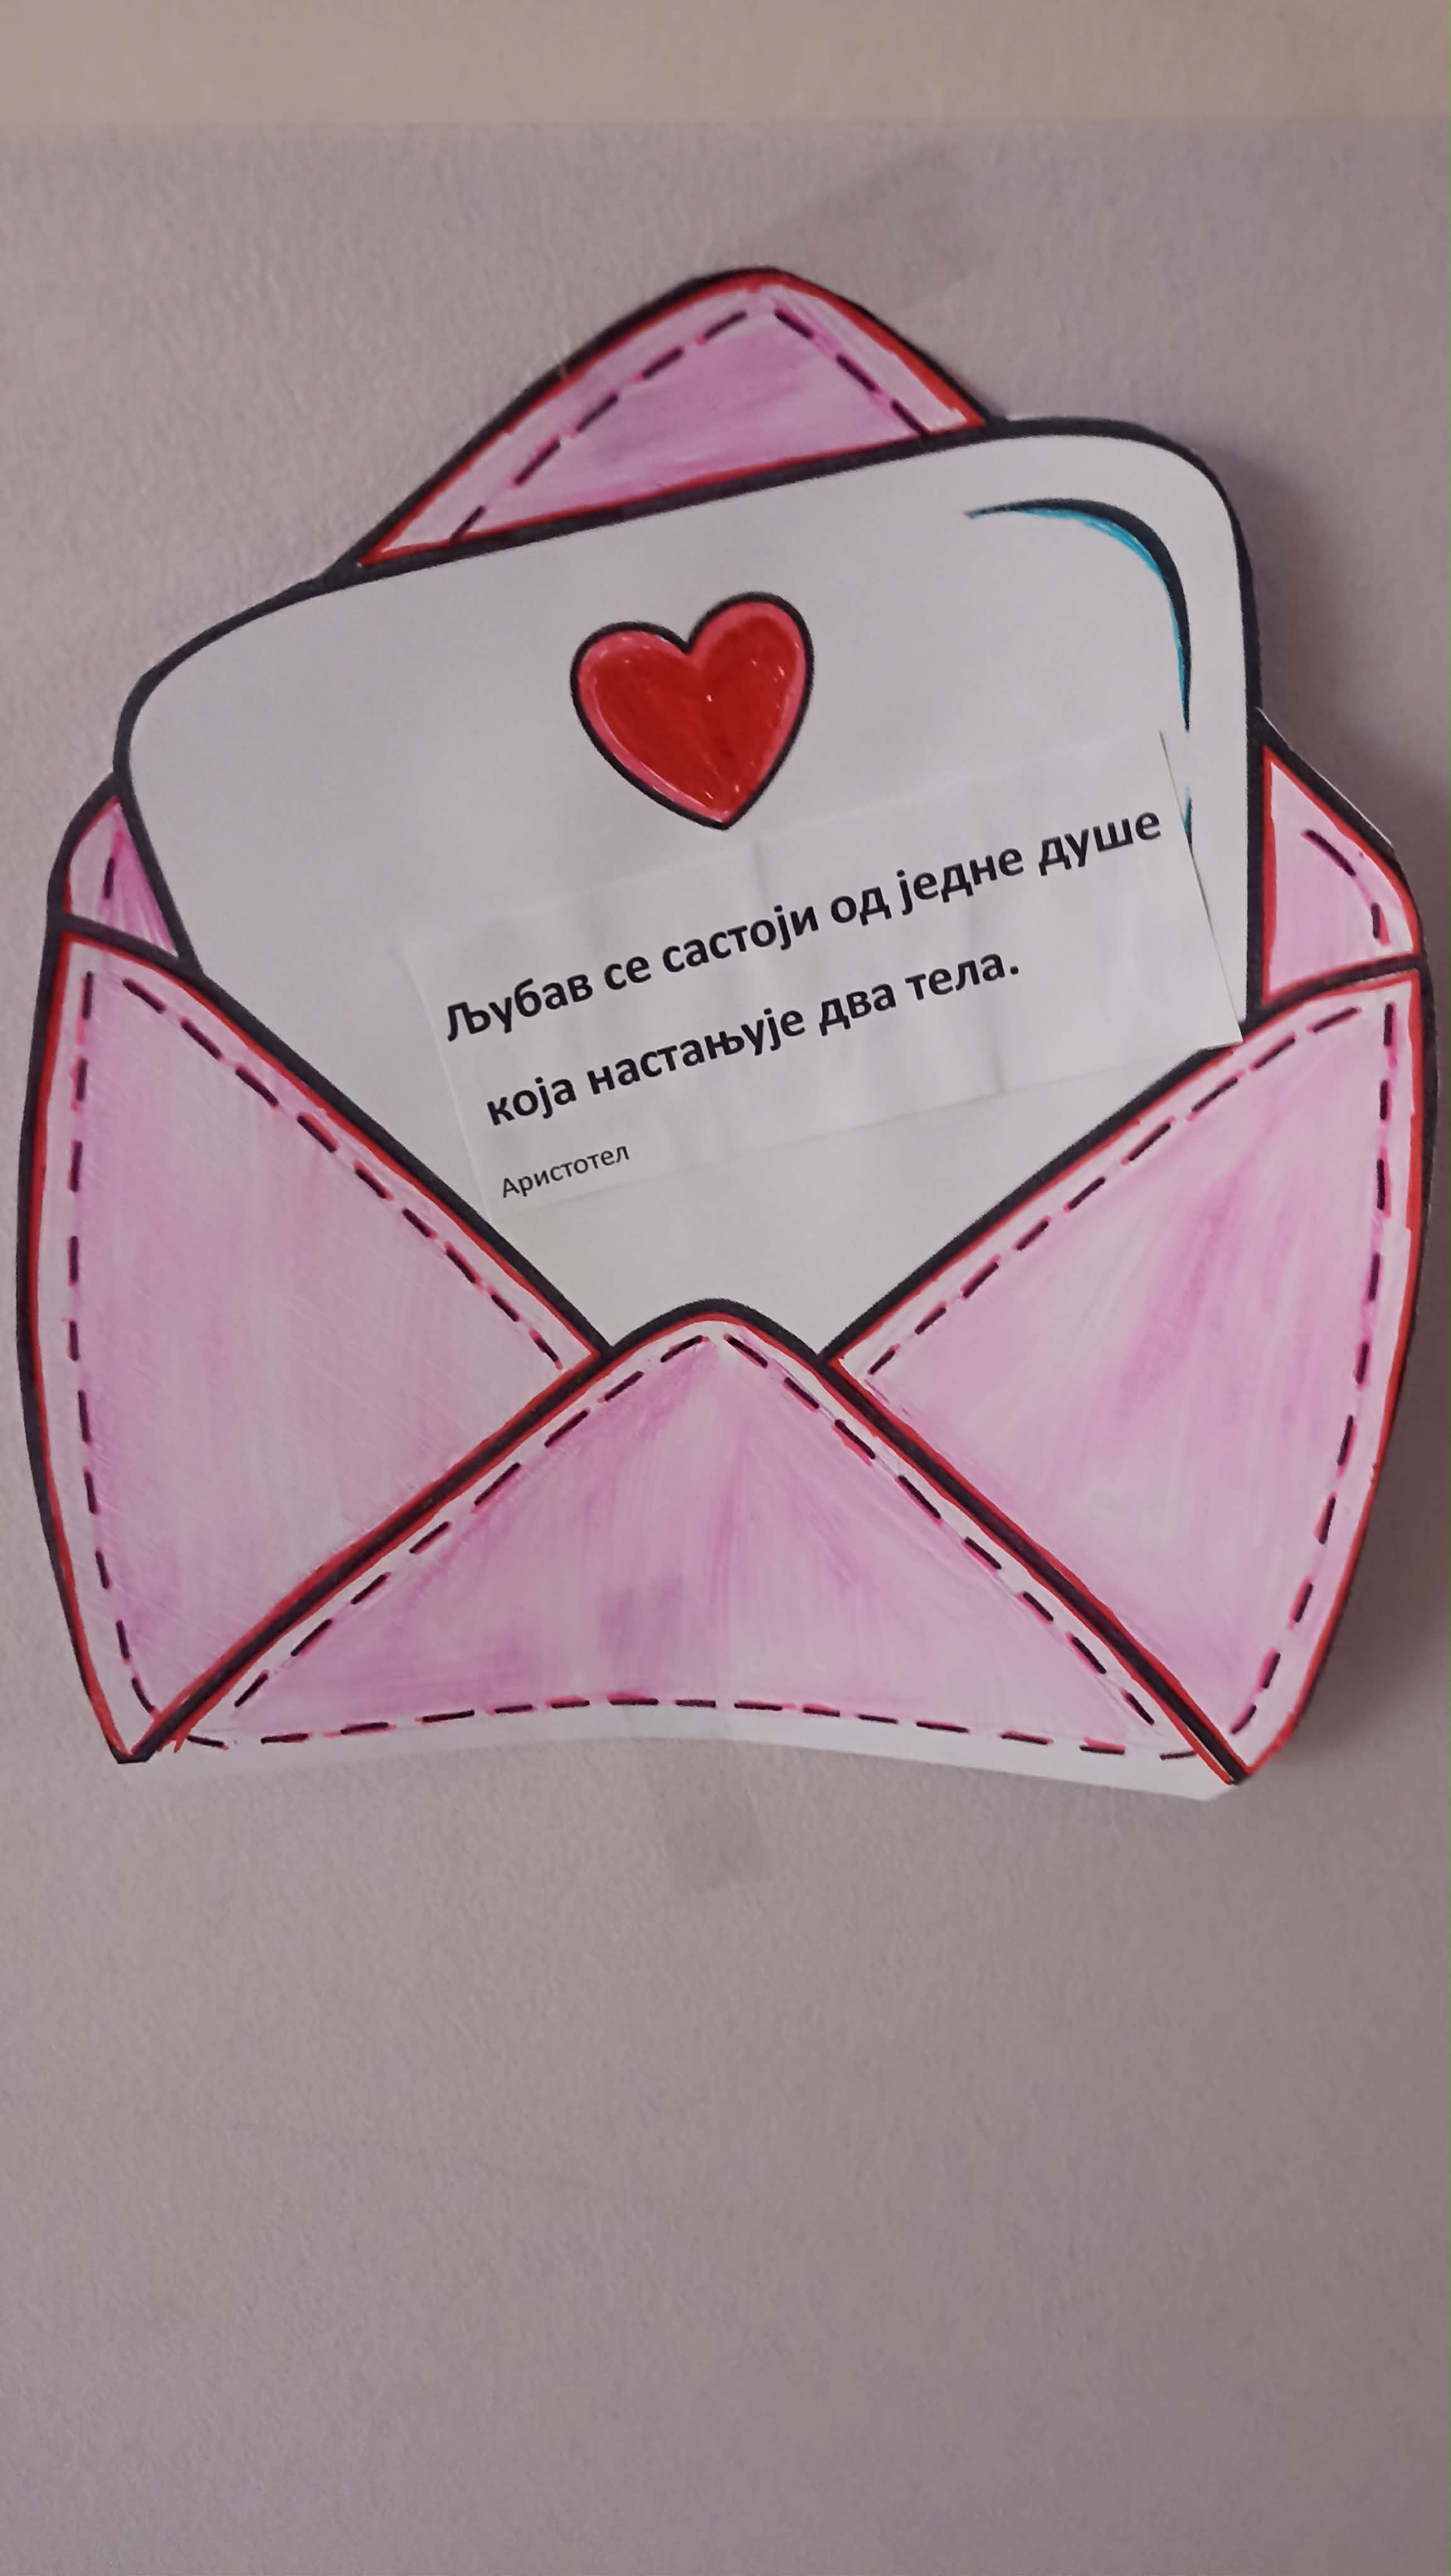 Љубав се састоји од једне душе
која настањује два тела.
Аристотел